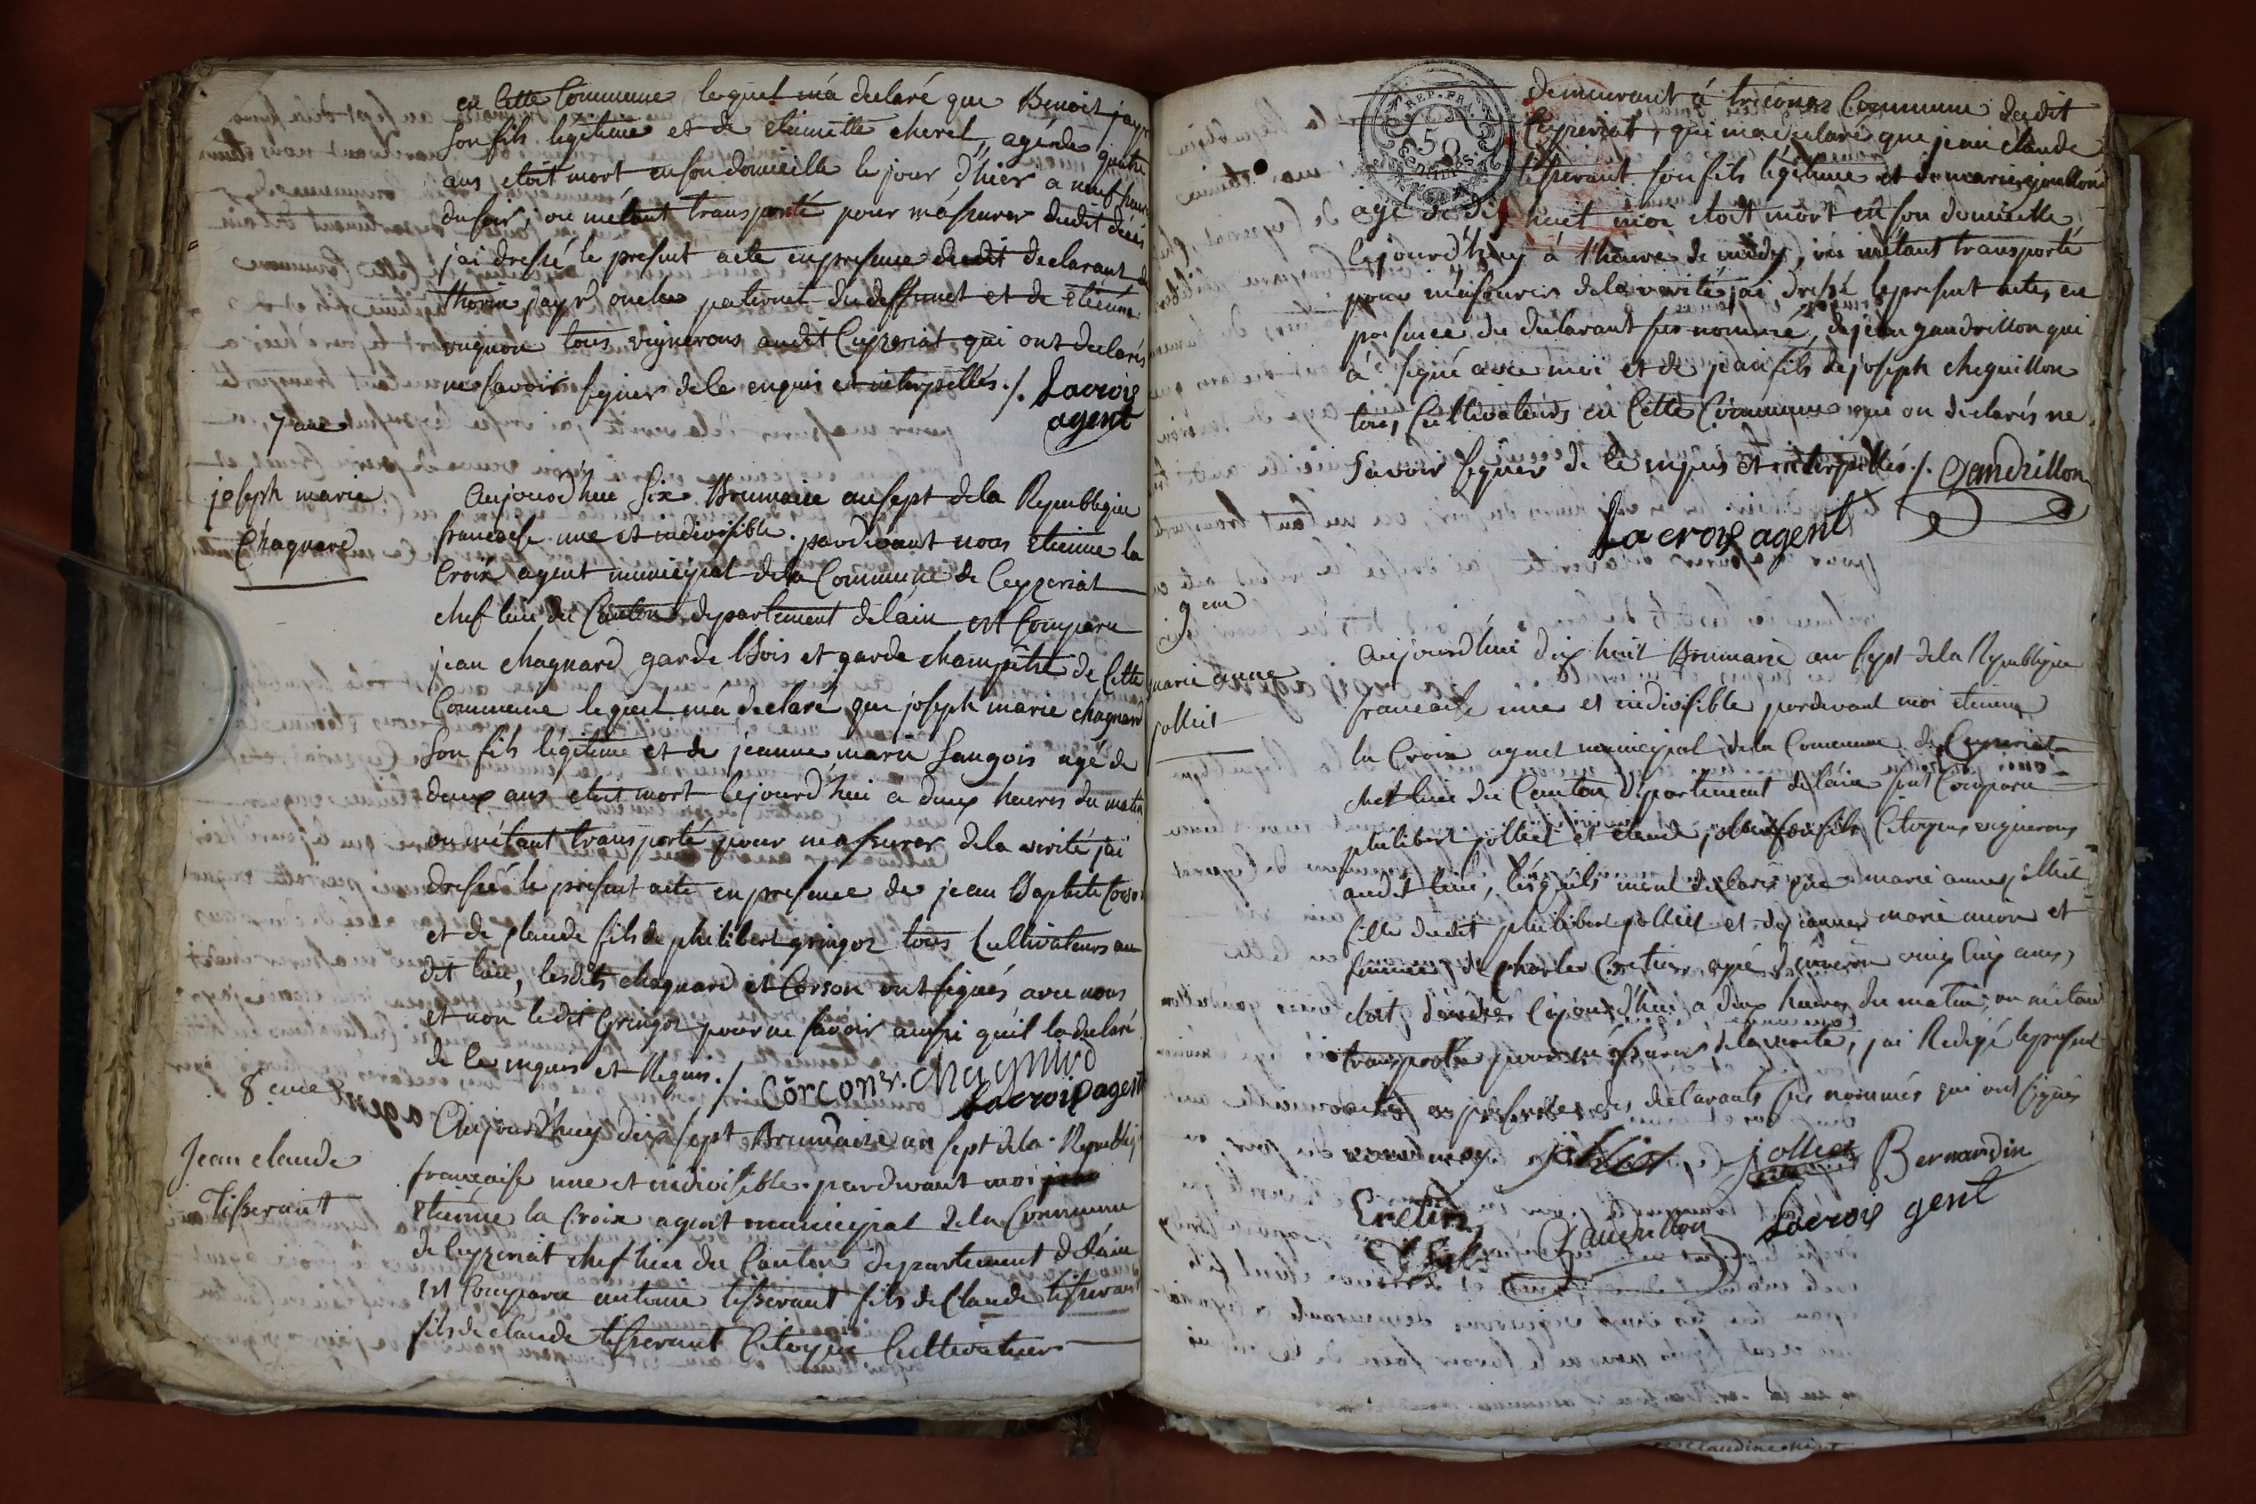 en cette Commune lequel m'a declaré que Benoit jayr
son fils legitime et de etiennette cheret, agé de quatre
ans etoit mort en son domicille le jour d'hier a neuf heures
du soir, ou m'etant transporté pour m'assurer dudit décés
j'ai dressé le present acte en presence dudit declarant de
thomas jayr oncle paternel du deffunct et de Etienne
vugnon tous vignerons audit Ceyzeriat qui ont declarés
ne savoir signer de le enquis et interpellés ./. Lacroix
agent
7 eme
joseph marie
Chagnard
Aujourd'hui Six Brumaire an sept de la Republique
francaise une et indivisible. pardevant nous Etienne la
Croix agent municipal de la Commune de Ceyzeriat
chef lieu du Canton departement de lain est Comparu
jean chagnard garde Bois et garde champêtre de Cette
Commune lequel m'a declaré que joseph marie chagnard
son fils légitime et de jeanne marie Sangois agé de
deux ans etoit mort lejourd'hui a deux heures du matin
ou m'étant transporté pour m'assurer de la verité j'ai
dressé le present acte en presence de jean Baptiste Corson
et de Claude fils de philibert gringoz tous Cultivateurs au
dit lieu, lesdits chagnard et Corson ont signés avec nous
et non ledit Gringoz pour ne savoir ainsi qu'il la declaré
de le enquis et Requis ./. Corcon. chagnard
Lacroix agent
8 eme
Jean claude
Tisserant
Aujourd'huy dix sept Brumaire an sept de la Republiq
francaise une et indivisible. pardevant moi
Etienne la Croix agent municipal de la Commune
de Ceyzeriat chef lieu du Canton departement de lain
est Comparu antoine tisserant fils de Claude tisserant
fils de claude tisserant Citoyen Cultivateur
REP. FRA.
50
demeurant á triconas Commune dudit
Ceyzeriat, qui m'a declaré que jean claude
tisserant son fils légitime et de marie goullon
agé de dix huit moi etoit mort en son domicille
lejourd'huy à lheure de midy, ou m'étant transporté
pour m'assurer de la verité j'ai dressé le present acte, en
presence du declarant sus nommé, de jean gandrillon qui
à signé avec moi et de jean fils de joseph cheguillon
tous Cultivateurs en Cette Commune qui on declarés ne
savoir signer de le enquis et interpellés ./. Gandrillon
Lacroix agent
9 eme
marie anne
jolliet
Aujourd'hui dix huit Brumaire an sept de la Republique
francaise une et indivisible pardevant moi etienne
la Croix agent municipal de la Commune de Ceyzeriat
chef lieu du Canton departement de lain sont Comparu
philibert jolliet et claude jolliet son fils Citoyens vignerons
audit lieu, lesquels m'ont declarés que marie anne jolliet
fille dudit philibert jolliet et de jeanne marie et
femme de Charles Cretin, agé denviron vingt Cinq ans,
etoit décédée lejourd'hui a deux heures du matin, ou m'étant
transporté pour m'assurer de la verité, j'ai Redigé le present
acte en presence des declarants sus nommés qui ont signés
avec moy jolliet jolliet Bernardin
Cretin Gandrillon Lacroix gent